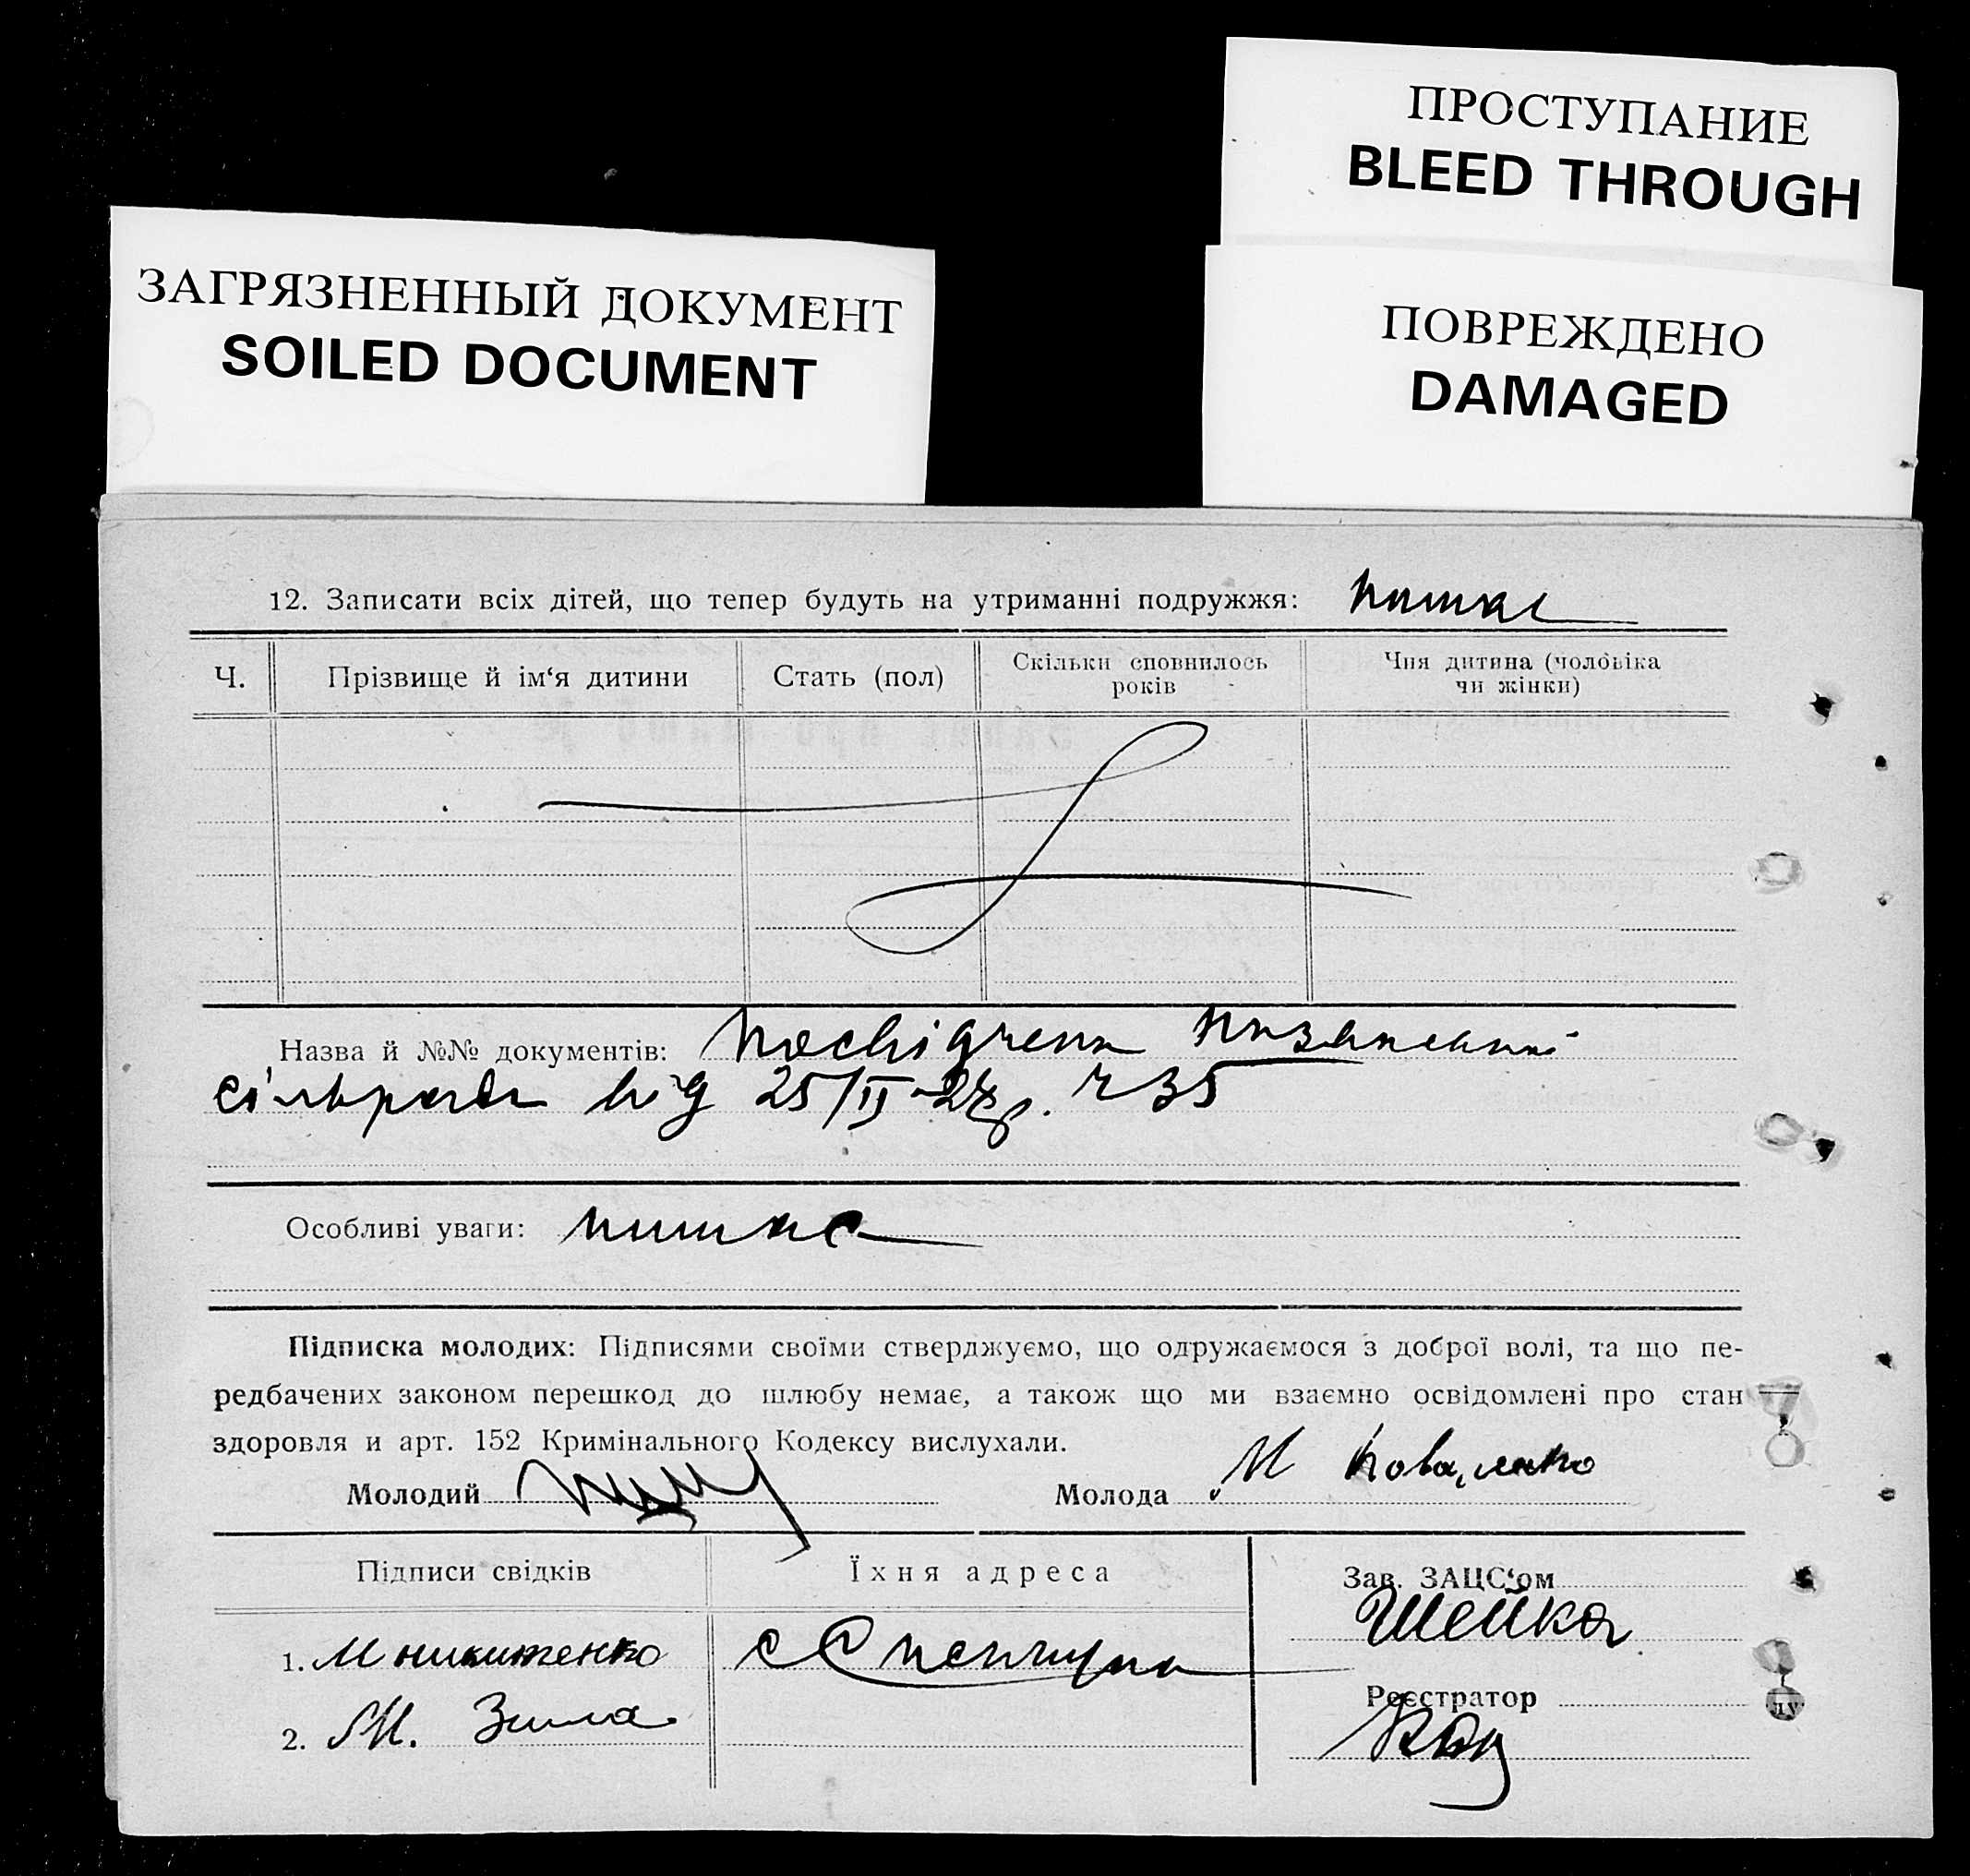 ПРОСТУПАНИЕ
BLEED THROUGH
ЗАГРЯЗНЕННЫЙ ДОКУМЕНТ
SOILED DOCUMENT
ПОВРЕЖДЕНО
DAMAGED
12. Записати всіх дітей, що тепер будуть на утриманні подружжя: немає
Ч. Прізвище й ім‘я дитини Стать (пол) Скільки сповнилось років Чия дитина (чоловіка чи жінки)
Назва й №№ документів: Посвідчення
сільради від 25/II-27р. ч 35
Особливі уваги: немає
Підписка молодих: Підписями своїми стверджуємо, що одружаємося з доброї волі, та що пе-
редбачених законом перешкод до шлюбу немає, а також що ми взаємно освідомлені про стан
здоровля и арт. 152 Кримінального Кодексу вислухали.
Молодий Молода М Коваленко
Підписи свідків Їхня адреса Зав. ЗАЦС‘ом
Шейка
1. М никитенко с
Реєстратор
2. М. Зима